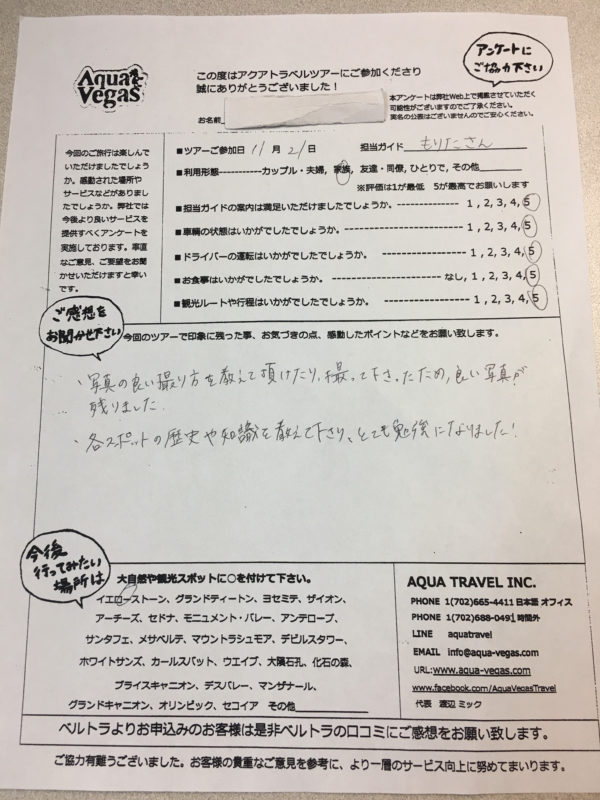 Aqua Vegas
この度はアクアトラベルツアーにご参加くださり
誠にありがとうございました!
アンケートに
ご協力下さい
お名前
本アンケートは弊社Web上で掲載させていただく
可能性がございますのでご了承ください。
実名の公表はございませんのでご安心ください。
今回のご旅行は楽しんで
いただけましたでしょう
か。感動された場所や
サービスなどがありまし
たでしょうか。弊社では
今後より良いサービスを
提供すべくアンケートを
実施しております。率直
なご意見、ご要望をお聞
かせいただけますと幸い
です。
■ツアーご参加日 11月 21日 担当ガイド もりたこさん
■利用形態-----------カップル・夫婦, 家族, 友達・同僚, ひとりで, その他
※評価は1が最低 5が最高でお願いします
■担当ガイドの案内は満足いただけましたでしょうか。 ---------- 1 , 2, 3, 4, 5
■車輌の状態はいかがでしたでしょうか。 ---------------------- 1 , 2, 3, 4, 5
■ドライバーの運転はいかがでしたでしょうか。 ---------------- 1 , 2, 3, 4, 5
■お食事はいかがでしたでしょうか。 ------------------- なし, 1 , 2, 3, 4, 5
■観光ルートや行程はいかがでしたでしょうか。 ---------------- 1 , 2, 3, 4, 5
ご感想を
お聞かせ下さい
今回のツアーで印象に残った事、お気づきの点、感動したポイントなどをお願い致します。
・写真の良い撮り方を教えて頂けたり、撮って下さったため、良い写真が
残りました.
・各スポットの歴史や知識を教えて下さり、とても勉強になりました!
今後
行ってみたい
場所は
大自然や観光スポットに○を付けて下さい。
イエローストーン、グランドティートン、ヨセミテ、ザイオン、
アーチーズ、セドナ、モニュメント・バレー、アンテロープ、
サンタフェ、メサベルテ、マウントラシュモア、デビルスタワー、
ホワイトサンズ、カールスバット、ウエイブ、大隕石孔、化石の森、
ブライスキャニオン、デスバレー、マンザナール、
グランドキャニオン、オリンピック、セコイア その他
AQUA TRAVEL INC.
PHONE 1(702)665-4411 日本語 オフィス
PHONE 1(702)688-0491 時間外
LINE aquatravel
EMAIL info@aqua-vegas.com
URL:www.aqua-vegas.com
www.facebook.com/AquaVegasTravel
代表 渡辺 ミック
ベルトラよりお申込みのお客様は是非ベルトラの口コミにご感想をお願い致します。
ご協力有難うございました。お客様の貴重なご意見を参考に、より一層のサービス向上に努めてまいります。